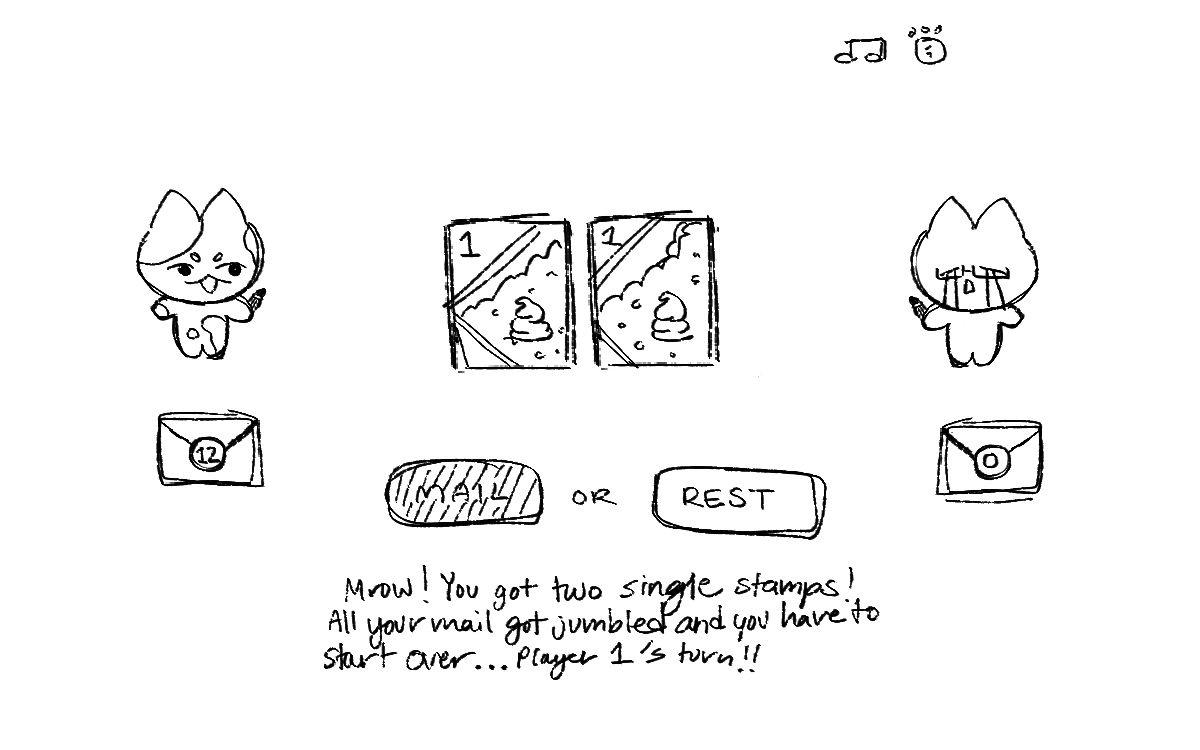 1 1
12
0
MAIL OR REST
Mrow! You got two single stamps!
All your mail got jumbled and you have to
start over... Player 1's turn!!